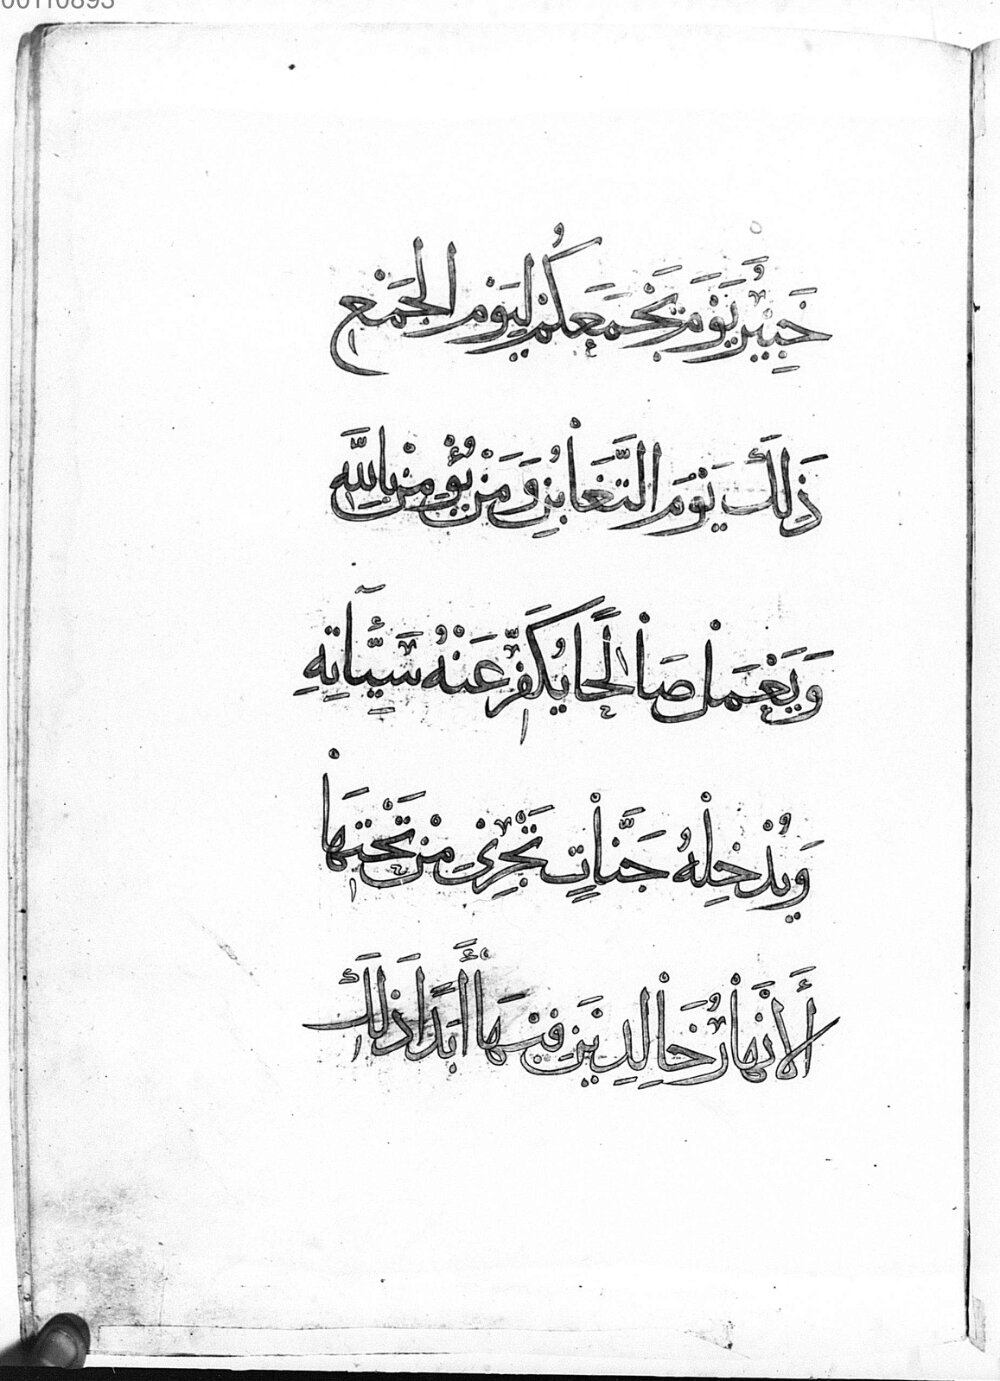 00110893
خَبِيرٌ يَوْمَ يَجْمَعُكُمْ لِيَوْمِ الْجَمْعِ
ذَلِكَ يَوْمُ التَّغَابُنِ وَمَنْ يُؤْمِنْ بِاللَّهِ
وَيَعْمَلْ صَالِحًا يُكَفِّرْ عَنْهُ سَيِّئَاتِهِ
وَيُدْخِلْهُ جَنَّاتٍ تَجْرِي مِنْ تَحْتِهَا
الْأَنْهَارُ خَالِدِينَ فِيهَا أَبَدًا ذَلِكَ